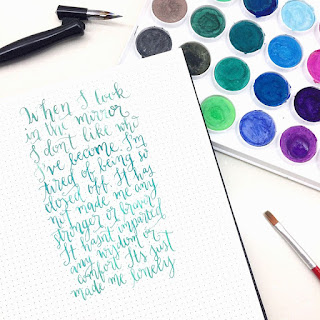 When I look
in the mirror
I don't like who
I've become. I'm
tired of being so
closed off. It has
not made me any
stronger or braver
It hasn't imparted
any wisdom or
comfort Its just
made me lonely